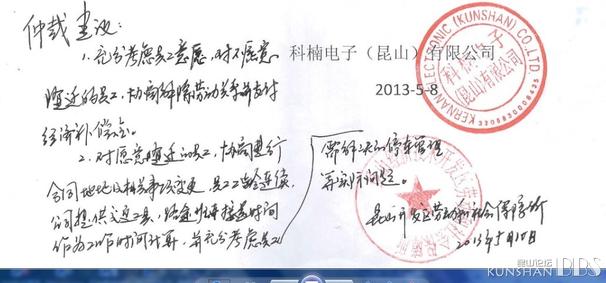 仲裁建议：
1.充分考虑员工意愿，对不愿意
随迁的员工，协商解除劳动关系并支付
经济补偿金。
2.对愿意随迁的员工，协商进行
合同地址相关事项变更，员工工龄连续，
公司提供交通工具，路途班车接送时间
作为工作时间计算，并充分考虑员工
科楠电子（昆山）有限公司
2013-5-8
KERNAN ELECTRONIC (KUNSHAN) CO.,LTD.
科楠电子
昆山有限公司
需解决的停车管理
等实际问题。
昆山开发区劳动和社会保障所
2013年5月10日
昆山论坛
KUNSHAN BBS